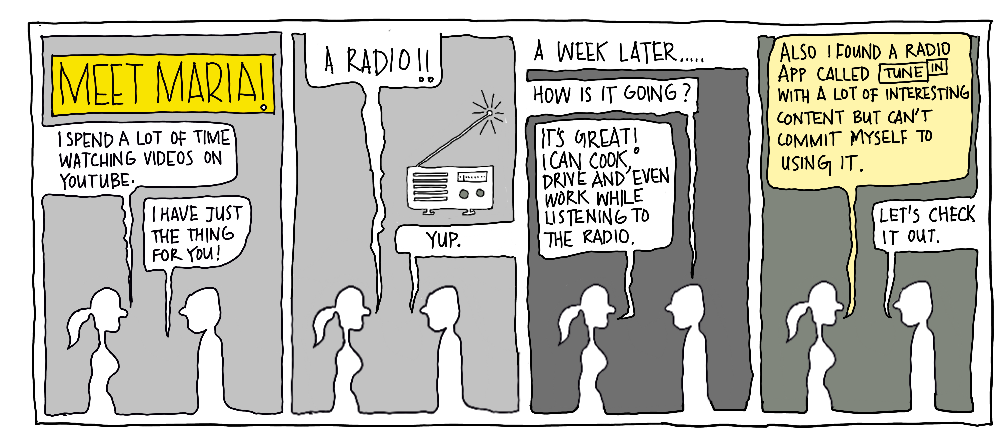 MEET MARIA!
I SPEND A LOT OF TIME
WATCHING VIDEOS ON
YOUTUBE.
I HAVE JUST
THE THING
FOR YOU!
A RADIO!!
YUP.
A WEEK LATER.....
HOW IS IT GOING?
IT'S GREAT!
I CAN COOK,
DRIVE AND EVEN
WORK WHILE
LISTENING TO
THE RADIO.
ALSO I FOUND A RADIO
APP CALLED TUNE IN
WITH A LOT OF INTERESTING
CONTENT BUT CAN'T
COMMIT MYSELF TO
USING IT.
LET'S CHECK
IT OUT.